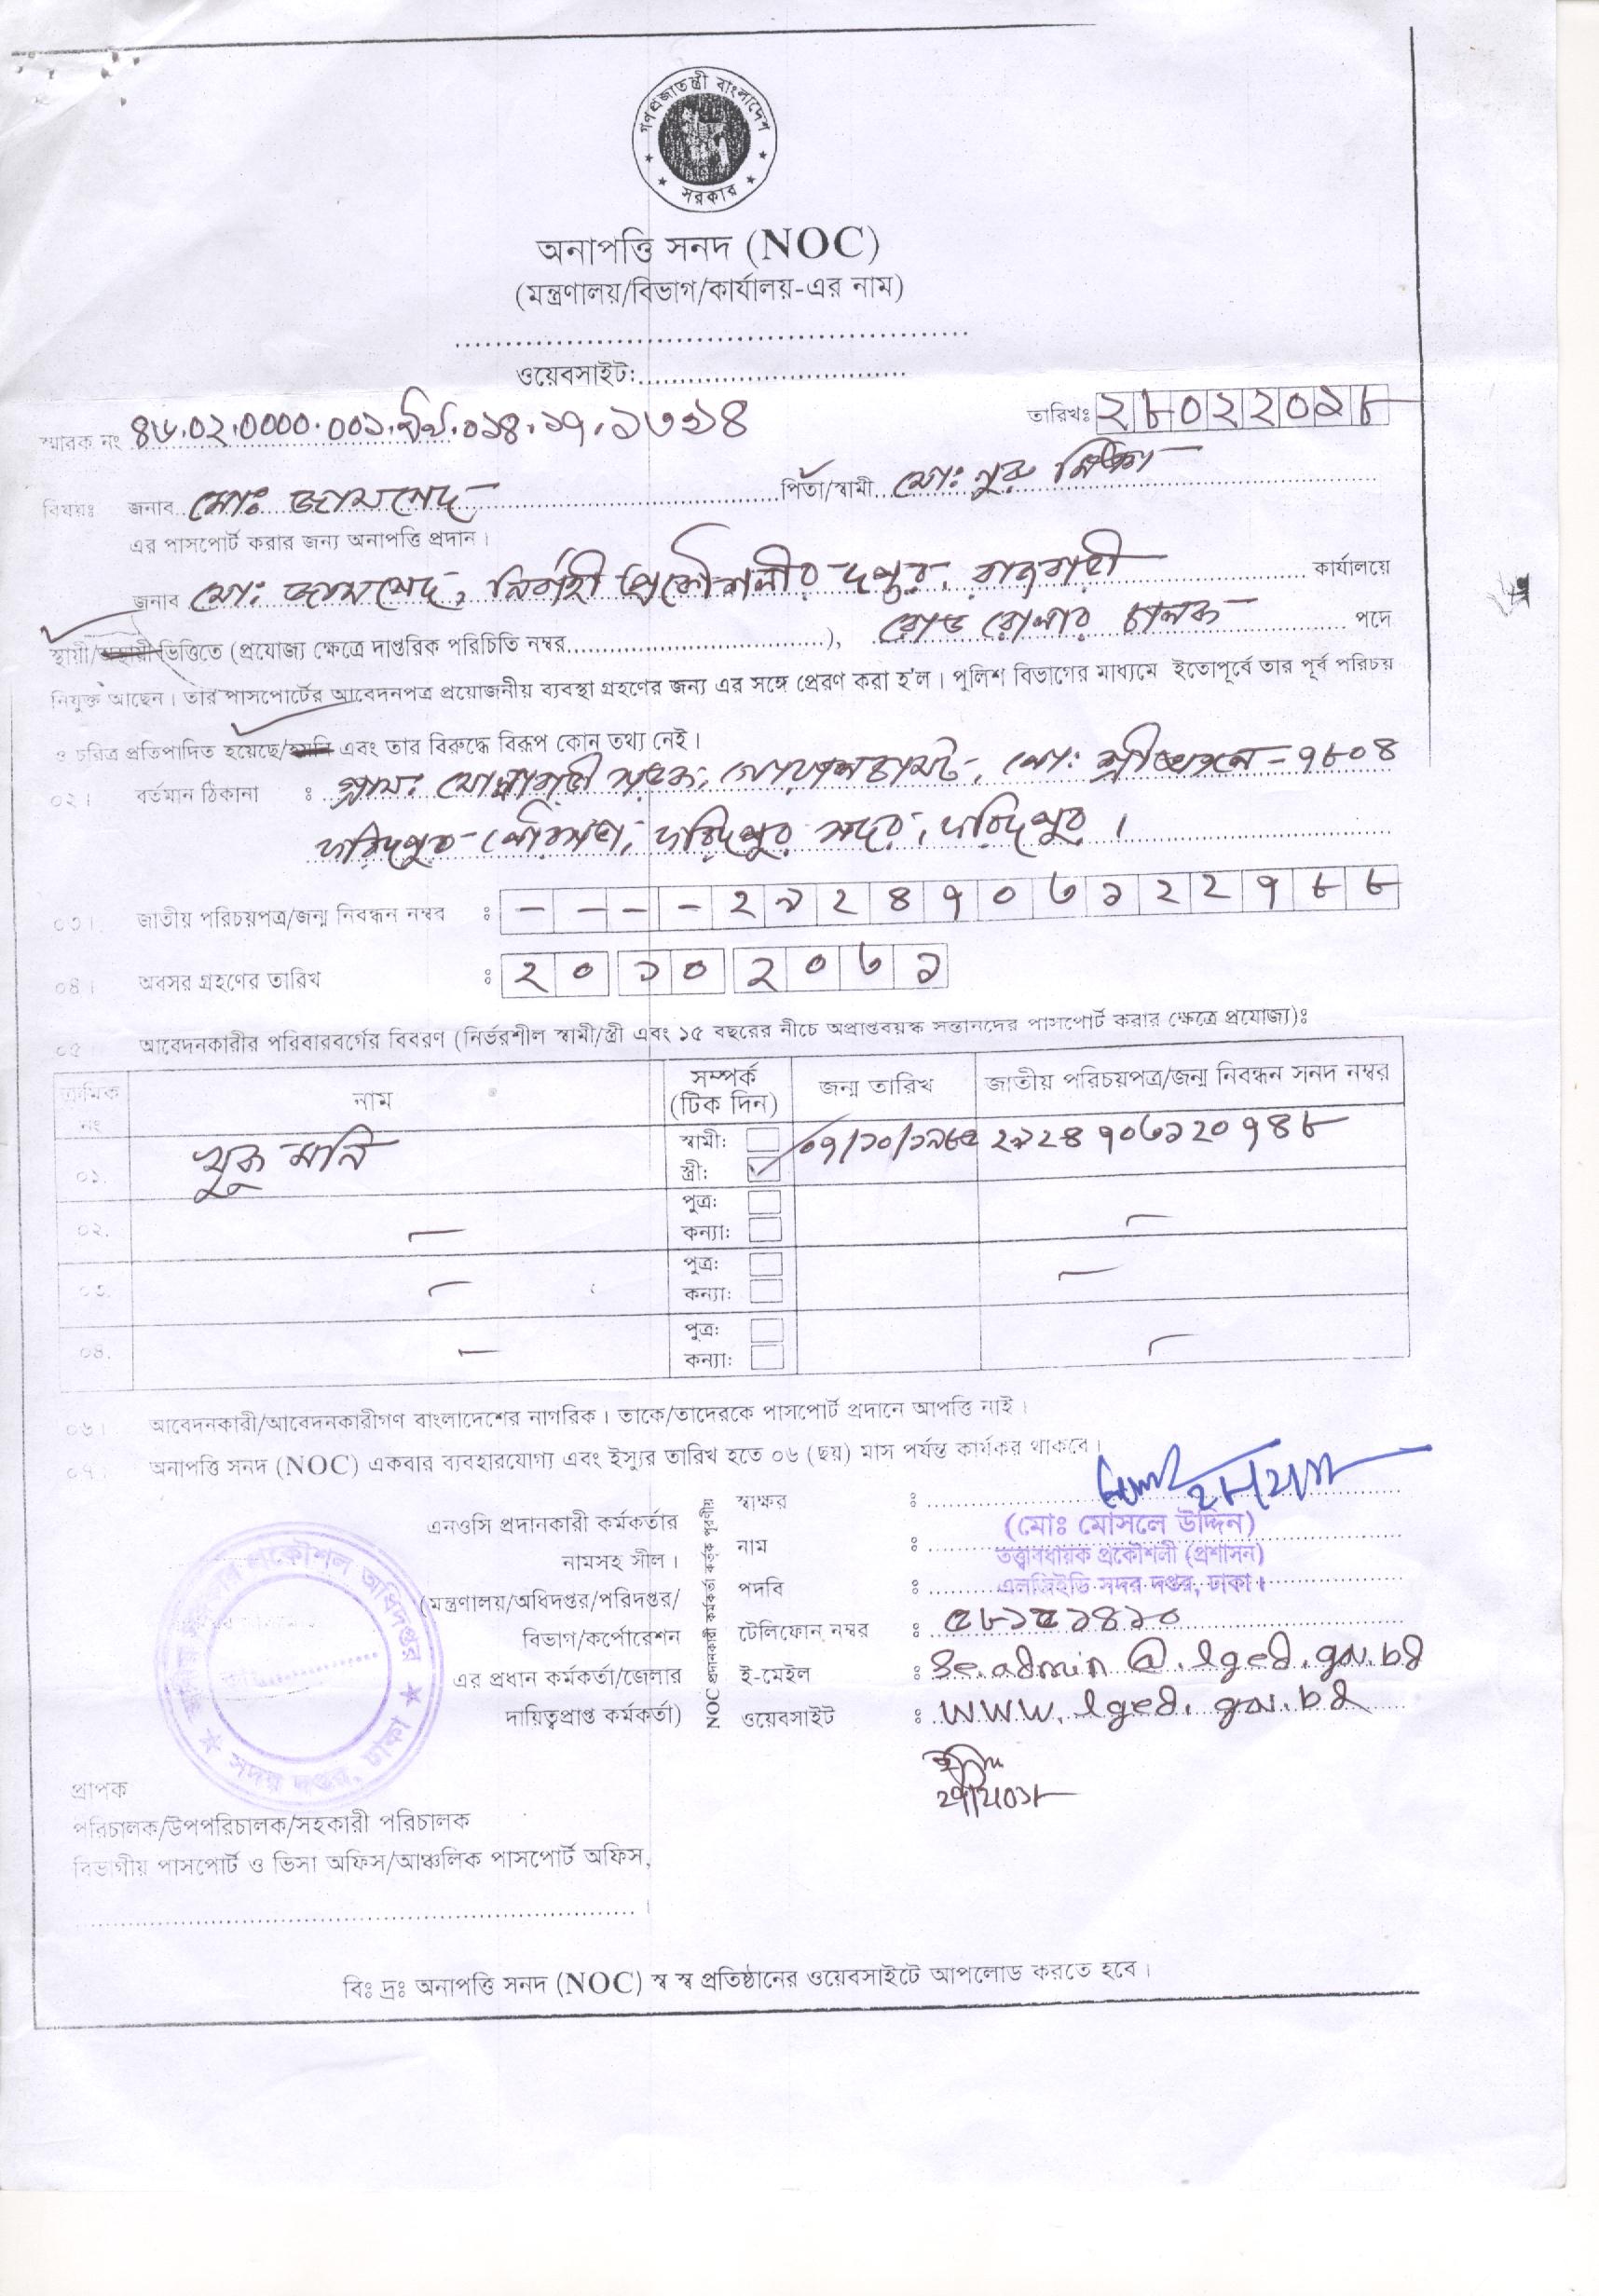 গণপ্রজাতন্ত্রী বাংলাদেশ
সরকার
অনাপত্তি সনদ (NOC)
(মন্ত্রণালয়/বিভাগ/কার্যালয়-এর নাম)
ওয়েবসাইট:
স্মারক নং ৪৬.০২.০০০০.০০১. .০১৪.১৭.১৬১৪ তারিখঃ ২৮০২২০১৮
বিষয়ঃ জনাব মোঃ জামসেদ পিতা/স্বামী মোঃ নুরু মিঞা
এর পাসপোর্ট করার জন্য অনাপত্তি প্রদান।
জনাব মোঃ জামসেদ, নির্বাহী প্রকৌশলীর দপ্তর, রাজবাড়ী কার্যালয়ে
স্থায়ী/অস্থায়ী ভিত্তিতে (প্রযোজ্য ক্ষেত্রে দাপ্তরিক পরিচিতি নম্বর), রোড রোলার চালক পদে
নিযুক্ত আছেন। তার পাসপোর্টের আবেদনপত্র প্রয়োজনীয় ব্যবস্থা গ্রহণের জন্য এর সঙ্গে প্রেরণ করা হ'ল। পুলিশ বিভাগের মাধ্যমে ইতোপূর্বে তার পূর্ব পরিচয়
ও চরিত্র প্রতিপাদিত হয়েছে/হয়নি এবং তার বিরুদ্ধে বিরূপ কোন তথ্য নেই।
০২। বর্তমান ঠিকানা ঃ গ্রামঃ মোল্লাবাড়ী সড়ক, গোয়ালচামট, পোঃ শ্রীঅঙ্গন-৭৮০৪
ফরিদপুর পৌরসভা, ফরিদপুর সদর, ফরিদপুর।
০৩। জাতীয় পরিচয়পত্র/জন্ম নিবন্ধন নম্বর ঃ - - - - ২৯২৪৭০৬১২২৭৮৮
০৪। অবসর গ্রহণের তারিখ ঃ ২০ ১০ ২০৬১
০৫ আবেদনকারীর পরিবারবর্গের বিবরণ (নির্ভরশীল স্বামী/স্ত্রী এবং ১৫ বছরের নীচে অপ্রাপ্তবয়স্ক সন্তানদের পাসপোর্ট করার ক্ষেত্রে প্রযোজ্য)ঃ
ক্রমিক নং নাম সম্পর্ক (টিক দিন) জন্ম তারিখ জাতীয় পরিচয়পত্র/জন্ম নিবন্ধন সনদ নম্বর
০১. খুকু মনি স্বামী: ০৭/১০/১৯৮৫ ২৯২৪৭০৬১২০৭৪৮
স্ত্রী:
০২. - পুত্র: -
কন্যা:
০৩. - পুত্র: -
কন্যা:
০৪. - পুত্র: -
কন্যা:
০৬। আবেদনকারী/আবেদনকারীগণ বাংলাদেশের নাগরিক। তাকে/তাদেরকে পাসপোর্ট প্রদানে আপত্তি নাই।
০৭। অনাপত্তি সনদ (NOC) একবার ব্যবহারযোগ্য এবং ইস্যুর তারিখ হতে ০৬ (ছয়) মাস পর্যন্ত কার্যকর থাকবে।
এনওসি প্রদানকারী কর্মকর্তার
নামসহ সীল।
(মন্ত্রণালয়/অধিদপ্তর/পরিদপ্তর/
বিভাগ/কর্পোরেশন
এর প্রধান কর্মকর্তা/জেলার
দায়িত্বপ্রাপ্ত কর্মকর্তা)
NOC প্রদানকারী কর্মকর্তা কর্তৃক পূরণীয়
স্বাক্ষর ঃ
নাম ঃ (মোঃ মোসলে উদ্দিন)
তত্ত্বাবধায়ক প্রকৌশলী (প্রশাসন)
পদবি ঃ এলজিইডি সদর দপ্তর, ঢাকা।
টেলিফোন নম্বর ঃ ৫৮১৫১৪১০
ই-মেইল ঃ se.admin@.lged.gov.bd
ওয়েবসাইট ঃ www.lged.gov.bd
প্রকৌশল অধিদপ্তর
সদর দপ্তর, ঢাকা
প্রাপক
পরিচালক/উপপরিচালক/সহকারী পরিচালক
বিভাগীয় পাসপোর্ট ও ভিসা অফিস/আঞ্চলিক পাসপোর্ট অফিস,
বিঃ দ্রঃ অনাপত্তি সনদ (NOC) স্ব স্ব প্রতিষ্ঠানের ওয়েবসাইটে আপলোড করতে হবে।